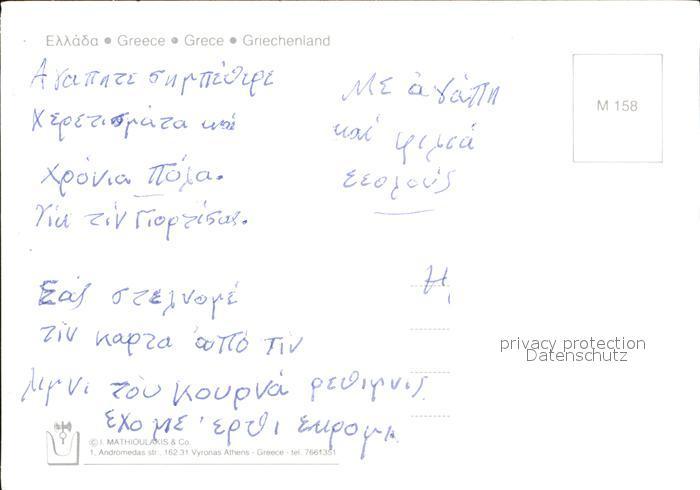 Ελλάδα ● Greece ● Grece ● Griechenland
Αγαπητε σημπέθερε
Χερετισμάτα και
χρόνια πόλα.
Για τιν Γιορτίσας.
Σας στελνομέ
τιν καρτα από τιν
λιμνι του κουρνά ρεθιμνις
εχομε ερθι εκρομι
Με αγάπη
και φιλιά
σεολούς
M 158
Η
privacy protection
Datenschutz
© I. MATHIOULAKIS & Co.
1, Andromedas str., 162 31 Vyronas Athens - Greece - tel. 7661351